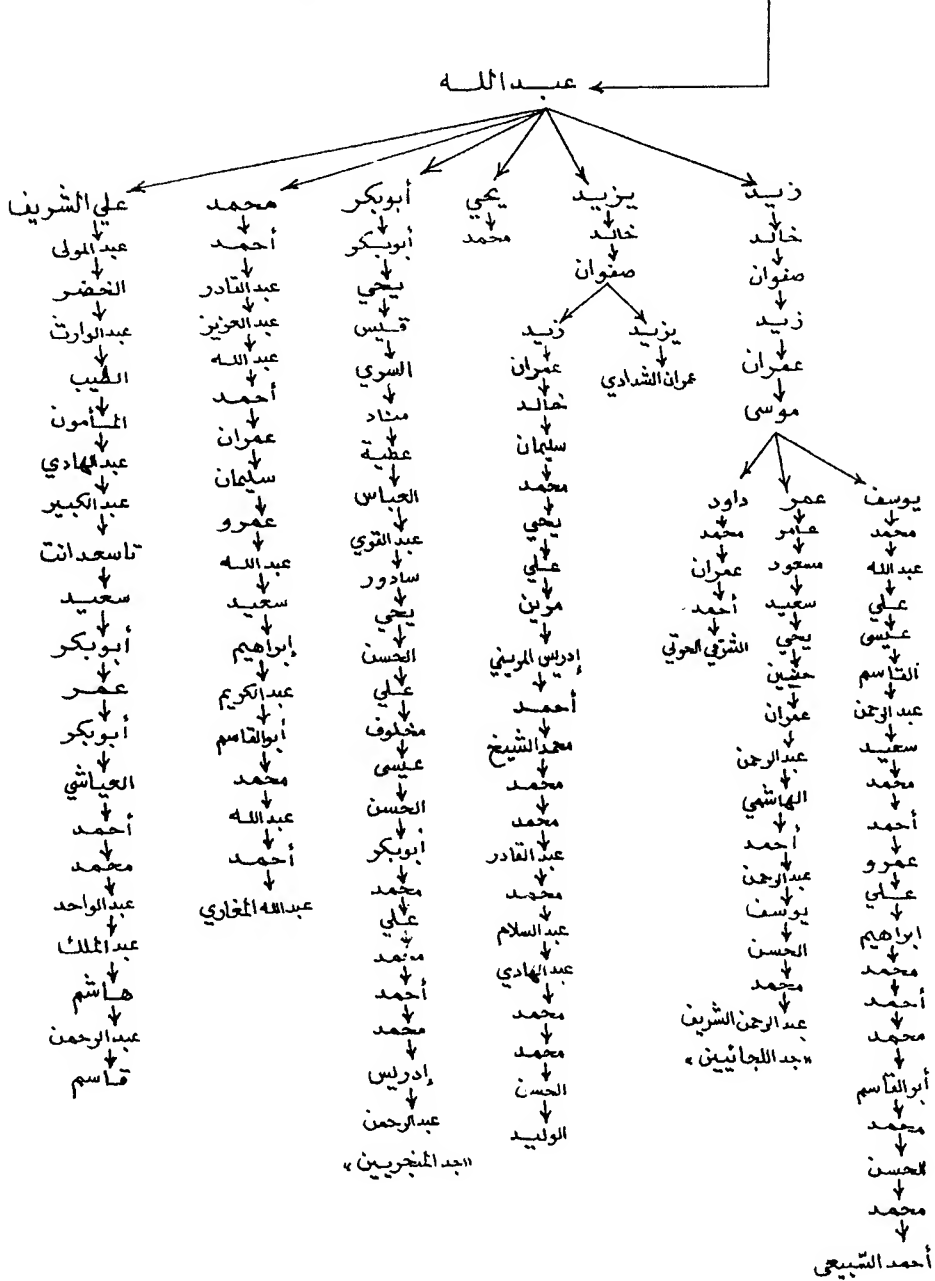 عبدالله
زيد
خالد
صفوان
زيد
عمران
موسى
يوسف
محمد
عبدالله
علي
عيسى
القاسم
عبدالرحمن
سعيد
محمد
أحمد
عمرو
علي
ابراهيم
محمد
أحمد
محمد
أبوالقاسم
محمد
الحسن
محمد
أحمد السّبيعي
عمر
عامر
مسعود
سعيد
يحي
حنين
عمران
عبدالرحمن
الهاشمي
أحمد
عبدالرحمن
يوسف
الحسن
محمد
عبدالرحمن الشريف
«جد اللجائيين»
داود
محمد
عمران
أحمد
الشرقي الحوتي
يزيد
خالد
صفوان
يزيد
عمران الشدادي
زيد
عمران
خالد
سليمان
محمد
يحي
علي
مرين
إدريس المريني
أحمد
محمد الشيخ
محمد
محمد
عبدالقادر
محمد
عبدالسلام
عبدالهادي
محمد
محمد
الحسن
الوليد
يحي
محمد
أبوبكر
أبوبكر
يحي
قيس
السري
مناد
عطية
العباس
عبدالقوي
سادور
يحي
الحسن
علي
مخلوف
عيسى
الحسن
أبوبكر
محمد
علي
محمد
أحمد
محمد
إدريس
عبدالرحمن
«جد المنجريين»
محمد
أحمد
عبدالقادر
عبدالعزيز
عبدالله
أحمد
عمران
سليمان
عمرو
عبدالله
سعيد
إبراهيم
عبدالكريم
أبوالقاسم
محمد
عبدالله
أحمد
عبدالله المغاري
علي الشريف
عبدالمولى
الخضر
عبدالوارث
الطيب
المأمون
عبدالهادي
عبدالكبير
تاسعدانت
سعيد
أبوبكر
عمر
أبوبكر
العياشي
أحمد
محمد
عبدالواحد
عبدالملك
هاشم
عبدالرحمن
قاسم